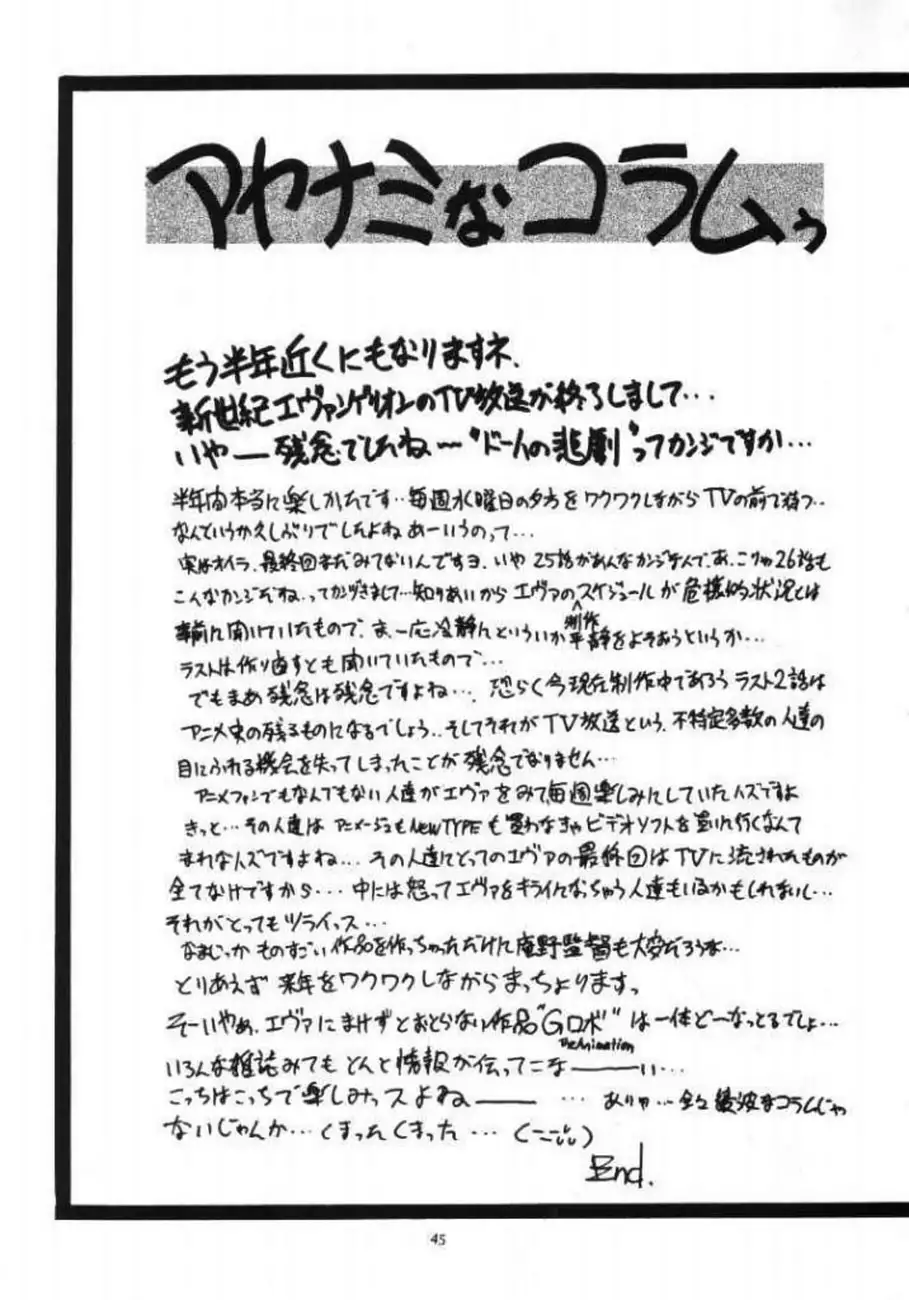 アヤナミなコラムぅ
もう半年近くにもなりますネ.
新世紀エヴァンゲリオンのTV放送が終了しまして…
いやー残念でしたね〜“ドー人の悲劇”ってカンジですか…
半年間本当に楽しかたです‥毎週水曜日の夕方をワクワクしながらTVの前で待つ‥
なんというか久しぶりでしたよねあーいうのって…
実はオイラ、最終回まだみてないんですヨ. いや25話があんなかんじなんで、あ、こりゃ26話も
こんなカンジだね、ってカンヅきまして…知りあいからエヴァの制作スケジュールが危機的状況とは
事前に聞いていたもので、ま、一応冷静んといういか平静をよそおうというか…
ラストは作り直すとも聞いていたもので…
でもまぁ残念は残念ですよね…. 恐らく今現在制作中であろうラスト2話は
アニメ史の残るものになるでしょう‥そしてそれがTV放送という、不特定多数の人達の
目にふれる機会を失ってしまったことが残念でなりません…
アニメファンでもなんでもない人達がエヴァをみて、毎週楽しみにしていたハズですよ
きっと…その人達はアニメージュもNEWTYPEも買わなきゃビデオソフトを買いに行くなんて
まれなハズですよね… その人達にとってのエヴァの最終回はTVに流されたものが
全てなけですから…中には怒ってエヴァをキライになっちゃう人達もいるかもしれないし…
それがとってもツライっス…
なまじっかものすごい作品を作っちゃっただけに庵野監督も大変だろうな…
とりあえず来年をワクワクしながらまっちょります。
そーいやぁ、エヴァにまけずとおとらない作品“Gロボ”は一体どーなっとるでしょ…
The Animation
いろんな雑誌みてもとんと情報が伝ってこなーーーい…
こっちはこっちで楽しみっスよねーー … ありゃ…全々綾波なコラムじゃ
ないじゃんか…くまったくまった…(ーー;;)
End.
45